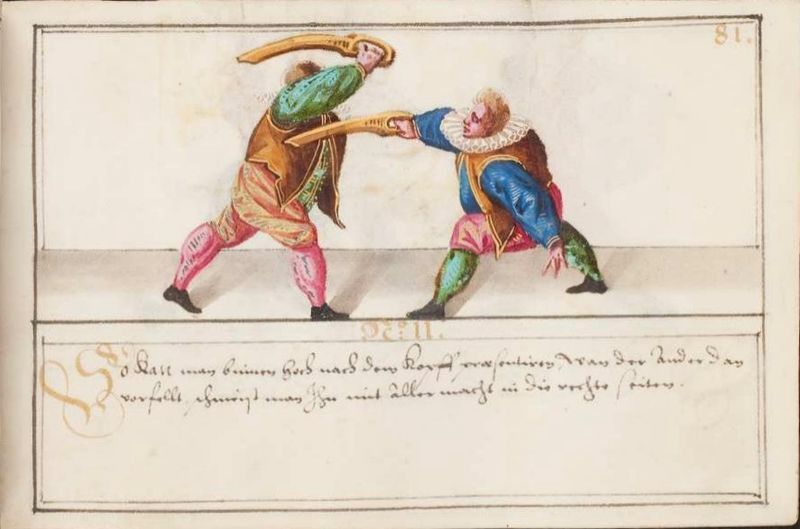 81.
No: 11.
So Kan man binnen hoch nach dem Kopff præsentiren, Wan der Ander dan
vorfellt, schmeist man Ihn mit Aller macht in die rechte seiten.